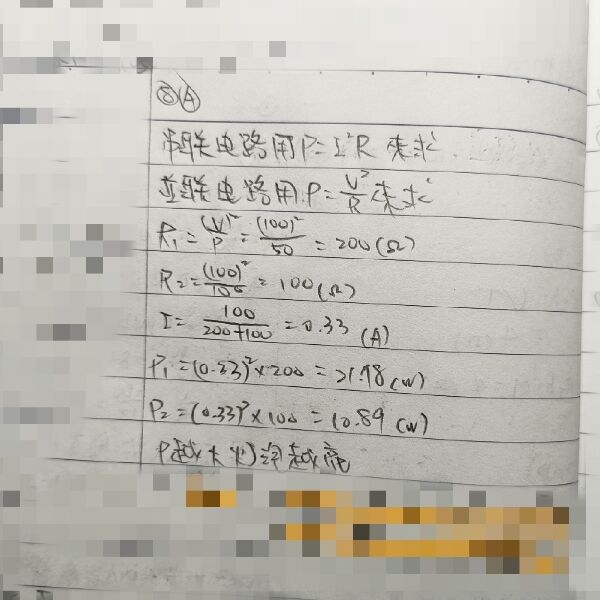 ⑧Ⓐ
串联电路用P=I²R 来求
並联电路用P=V²/R来求
R₁=(V)²/P=(100)²/50=200(Ω)
R₂=(100)²/100=100(Ω)
I=100/200+100=0.33(A)
P₁=(0.33)²×200=21.78(W)
P₂=(0.33)²×100=10.89(W)
P越大灯泡越亮